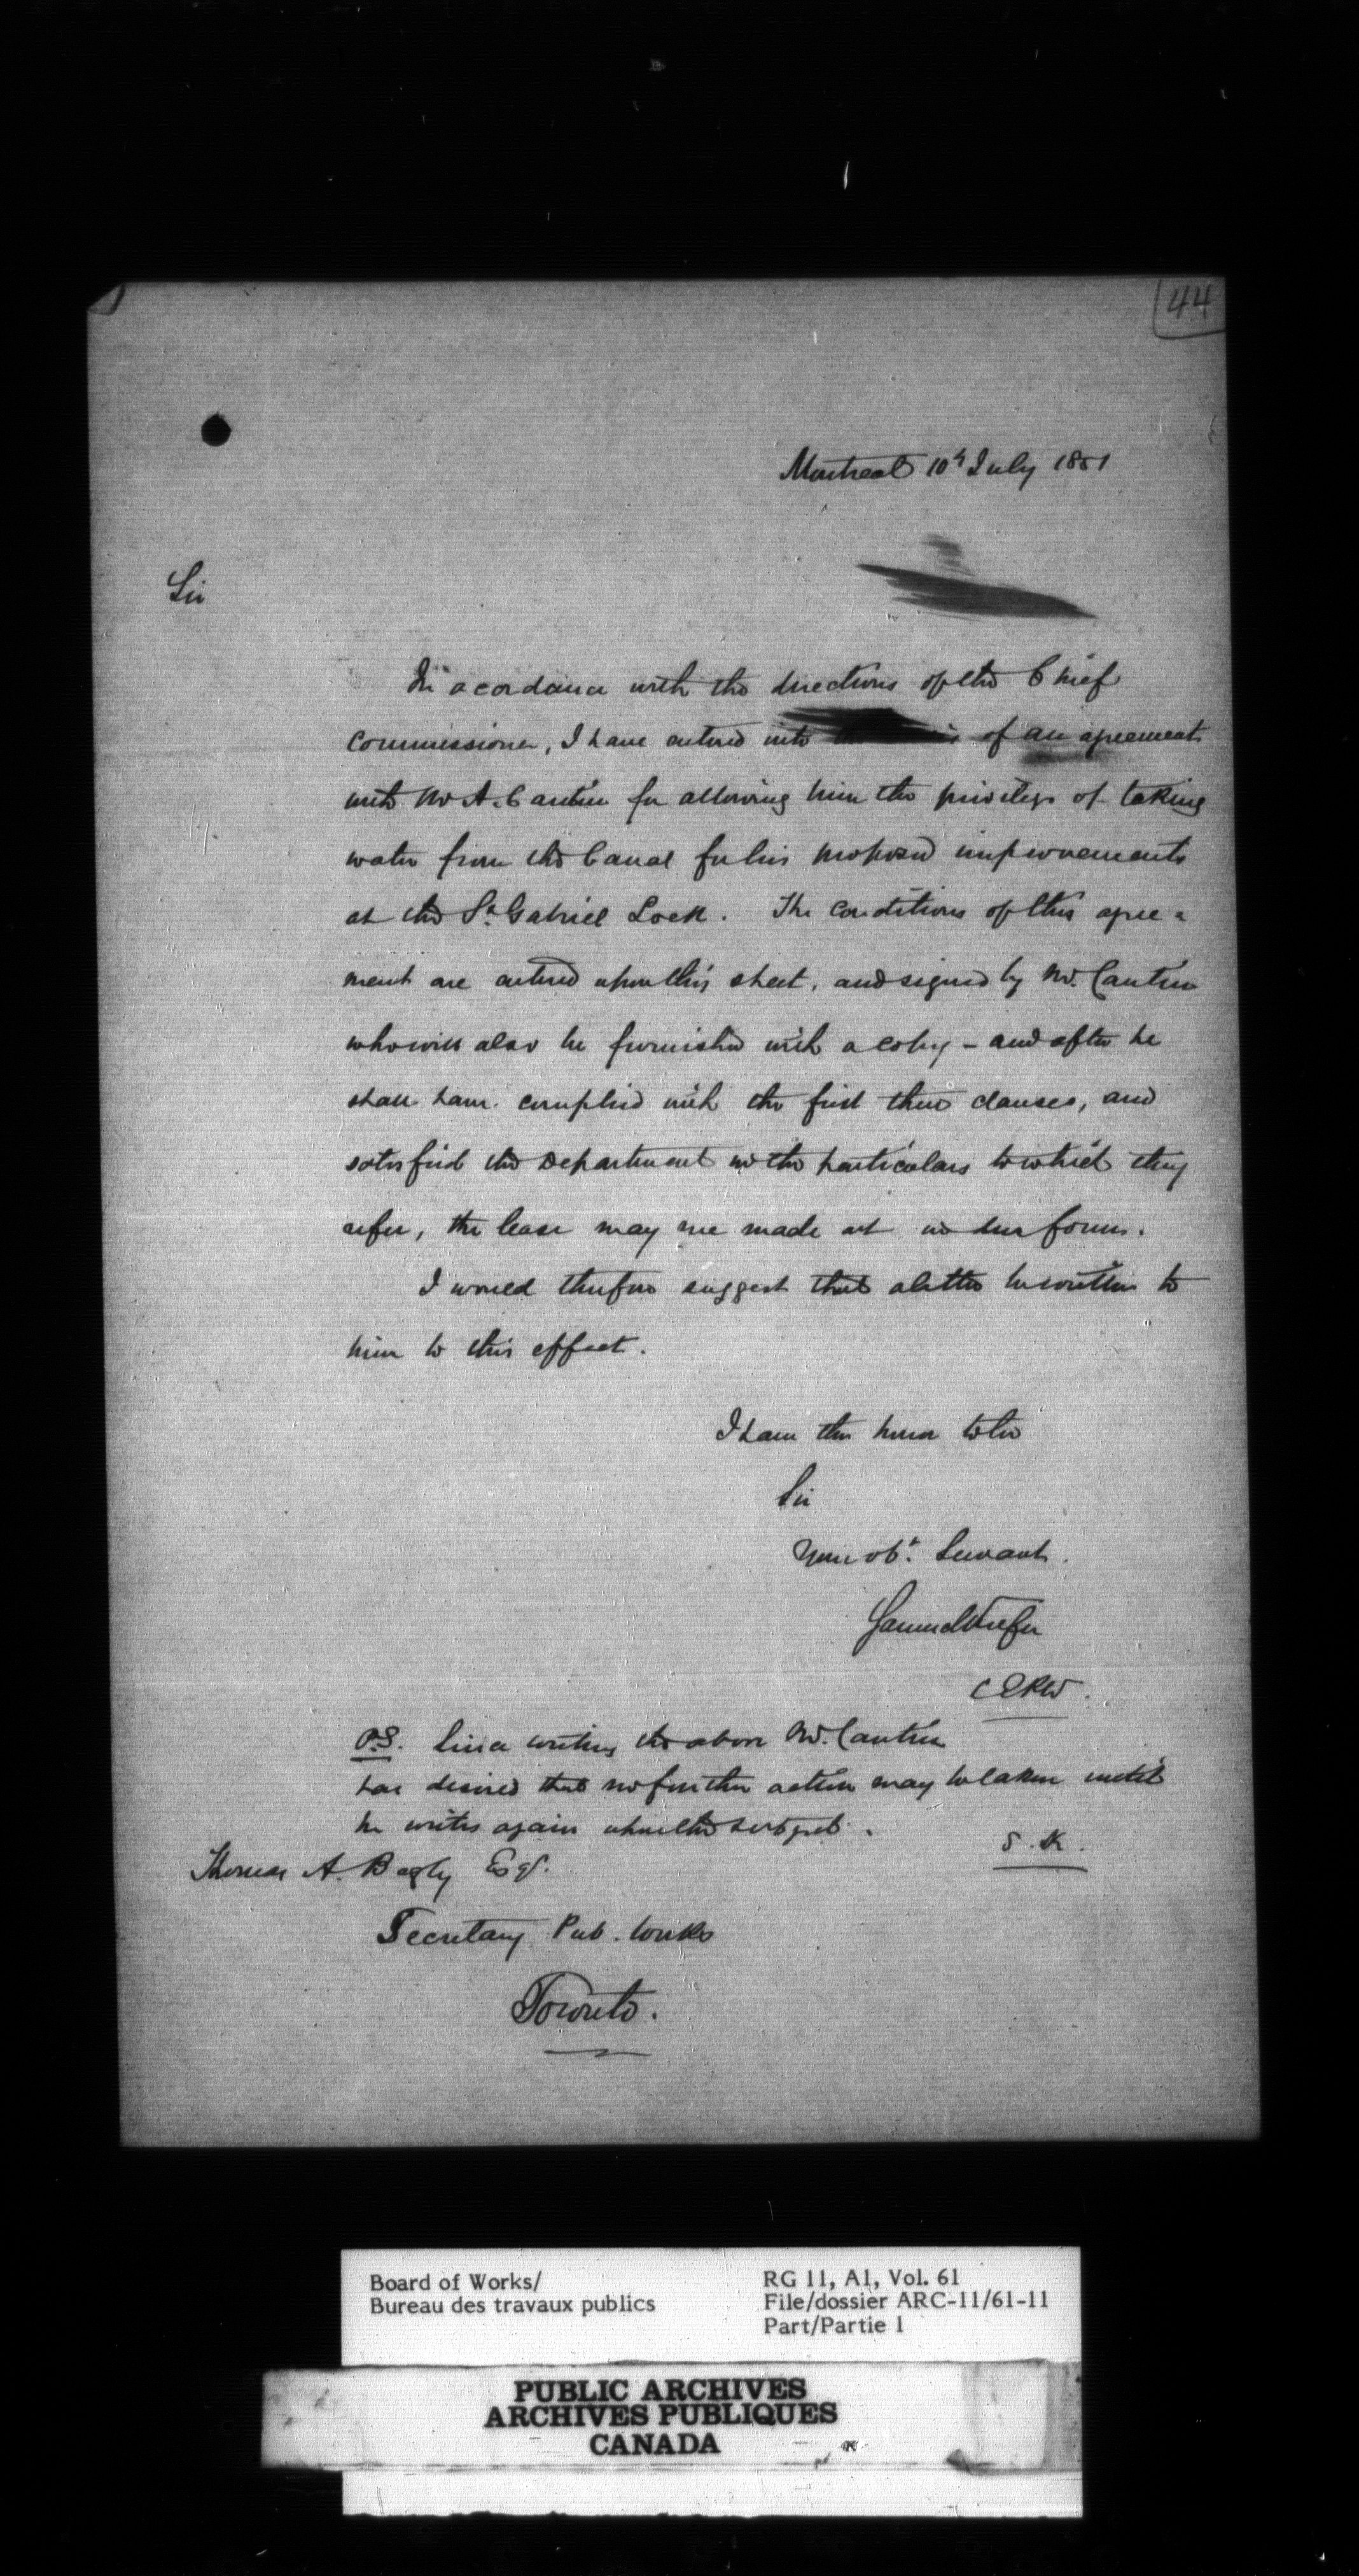 44
Montreal 10th July 1851
Sir
In acordance with the directions of the Chief
Commissioner, I have entered into of an agreement
with Mr A. Cantin for allowing him the privilege of taking
water from the Canal for his proposed improvements
at the St. Gabriel Lock. The conditions of this agree=
ment are entered upon this sheet, and signed by Mr. Cantin
who will also be furnished with a copy - and after he
shall have complied with the first three clauses, and
satisfied the Department in the particulars to which they
refer, the lease may me made out in due form.
I would therefore suggest that a letter be written to
him to this effect.
I have the honor to be
Sir
Your obt. Servant.
Samuel Keefer
C E P W.
P.S. Since writing the above Mr. Cantin
has desired that no further action may be taken until
he writes again upon the subject.
S. K.
Thomas A. Begly Esqr.
Secretary Pub. Works
Toronto.
Board of Works/
Bureau des travaux publics
RG 11, A1, Vol. 61
File/dossier ARC-11/61-11
Part/Partie 1
PUBLIC ARCHIVES
ARCHIVES PUBLIQUES
CANADA